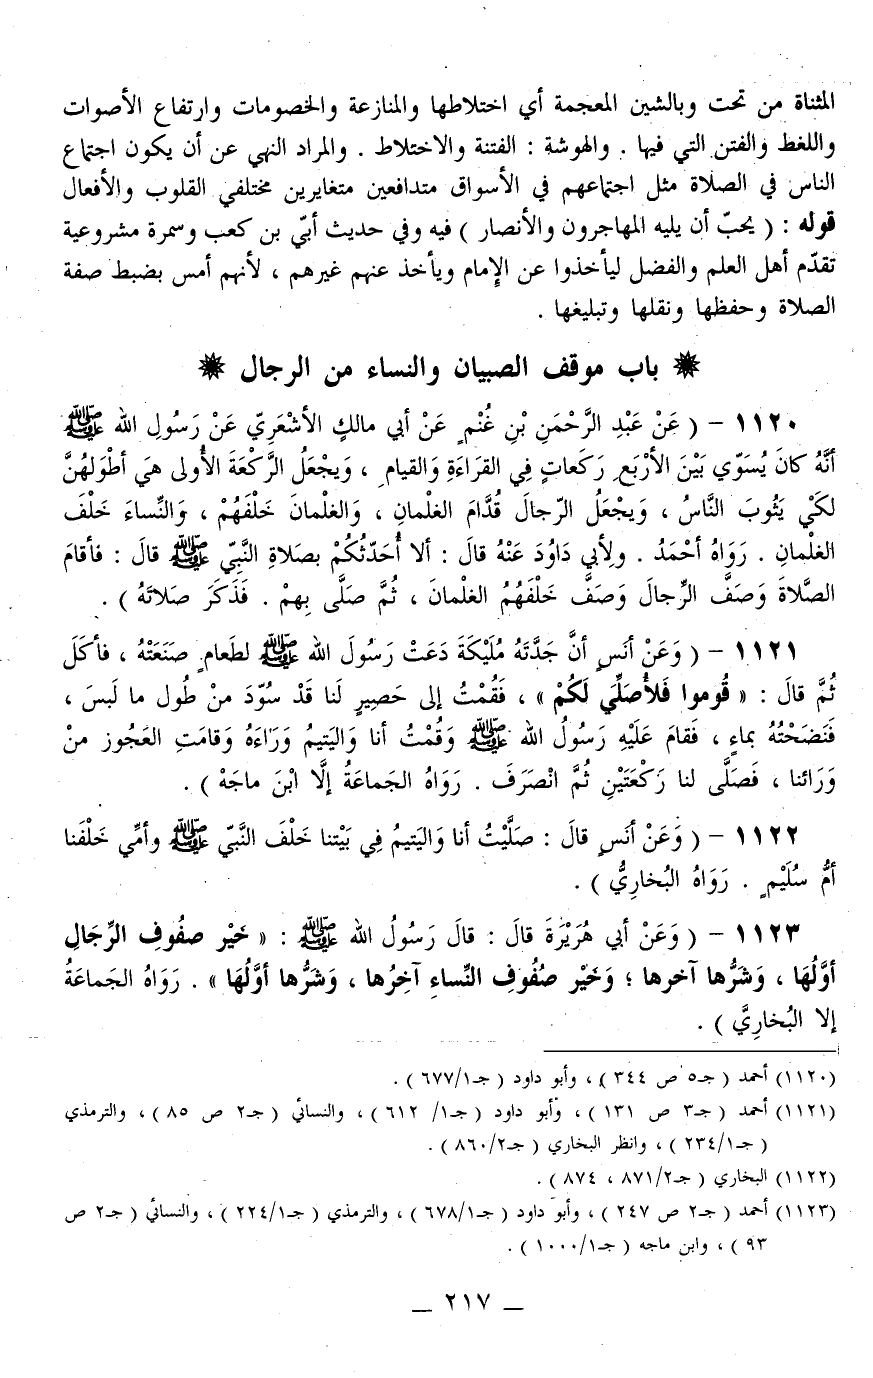 المثناة من تحت وبالشين المعجمة أي اختلاطها والمنازعة والخصومات وارتفاع الأصوات
واللغط والفتن التي فيها . والهوشة : الفتنة والاختلاط . والمراد النهي عن أن يكون اجتماع
الناس في الصلاة مثل اجتماعهم في الأسواق متدافعين متغايرين مختلفي القلوب والأفعال
قوله : ( يحبّ أن يليه المهاجرون والأنصار ) فيه وفي حديث أبيّ بن كعب وسمرة مشروعية
تقدّم أهل العلم والفضل ليأخذوا عن الإمام ويأخذ عنهم غيرهم ، لأنهم أمس بضبط صفة
الصلاة وحفظها ونقلها وتبليغها .
باب موقف الصبيان والنساء من الرجال
١١٢٠ – ( عَنْ عَبْدِ الرَّحْمَنِ بْنِ غُنْمٍ عَنْ أبي مالكٍ الأشْعَرِيّ عَنْ رَسُولِ الله ﷺ
أنَّهُ كانَ يُسَوّي بَيْنَ الأرْبَعِ رَكَعاتٍ فِي القرَاءَةِ وَالقيامِ ، وَيجْعَلُ الرَّكْعَةَ الأُولى هيَ أطْوَلهُنَّ
لكَيْ يَثُوبَ النَّاسُ ، وَيجْعَلُ الرّجالَ قُدَّامَ الغلْمانِ ، وَالغلْمانَ خَلْفَهُمْ ، وَالنِّساءَ خَلْفَ
الغلْمانِ . رَوَاهُ أحْمَدُ . ولأبي دَاوُدَ عَنْهُ قالَ : ألا أُحَدّثُكُمْ بصَلاةِ النَّبيّ ﷺ قالَ : فأقامَ
الصَّلاةَ وَصَفَّ الرِّجالَ وَصَفَّ خَلْفَهُمُ الغلْمانَ ، ثُمَّ صَلَّى بِهمْ . فَذَكَرَ صَلاتَهُ ) .
١١٢١ – ( وَعَنْ أنَسٍ أنَّ جَدَّتَهُ مُلَيْكَةَ دَعَتْ رَسُولَ الله ﷺ لطَعامٍ صَنَعَتْهُ ، فأكَلَ
ثُمَّ قالَ : « قُوموا فَلأُصَلِّي لَكُمْ » ، فَقُمْتُ إلى حَصِيرٍ لَنا قَدْ سُوّدَ منْ طُول ما لَبسَ ،
فَنَضَحْتُهُ بماءٍ ، فَقامَ عَلَيْهِ رَسُولُ الله ﷺ وَقُمْتُ أنا وَاليَتيمُ وَرَاءَهُ وَقامَتِ العَجُوز منْ
وَرَائنا ، فَصَلَّى لنا رَكْعَتَيْنِ ثُمَّ انْصَرَفَ . رَوَاهُ الجَماعَةُ إلَّا ابْنَ ماجَهْ ) .
١١٢٢ – ( وَعَنْ أنَسٍ قالَ : صَلَّيْتُ أنا وَاليَتيمُ فِي بَيْتنا خَلْفَ النَّبيّ ﷺ وأمِّي خَلْفَنا
أمُّ سُلَيْمٍ . رَوَاهُ البُخاريُّ ) .
١١٢٣ – ( وَعَنْ أبي هُرَيْرَةَ قالَ : قالَ رَسُولُ الله ﷺ : « خَيْر صفُوفِ الرِّجالِ
أوَّلُهَا ، وَشَرُّها آخرها ؛ وَخَيْر صُفُوفِ النِّساءِ آخِرُها ، وَشَرُّها أوَّلُها » . رَوَاهُ الجَماعَةُ
إلا البُخارِيَّ ) .
(١١٢٠) أحمد ( جـ٥ ص ٣٤٤ ) ، وأبو داود ( جـ١/٦٧٧ ) .
(١١٢١) أحمد ( جـ٣ ص ١٣١ ) ، وأبو داود ( جـ١/ ٦١٢ ) ، والنسائي ( جـ٢ ص ٨٥ ) ، والترمذي
( جـ١/٢٣٤ ) ، وانظر البخاري ( جـ٢/٨٦٠ ) .
(١١٢٢) البخاري ( جـ٢/٨٧١ ، ٨٧٤ ) .
(١١٢٣) أحمد ( جـ٢ ص ٢٤٧ ) ، وأبو داود ( جـ١/٦٧٨ ) ، والترمذي ( جـ١/٢٢٤ ) ، والنسائي ( جـ٢ ص
٩٣ ) ، وابن ماجه ( جـ١/١٠٠٠ ) .
– ٢١٧ –